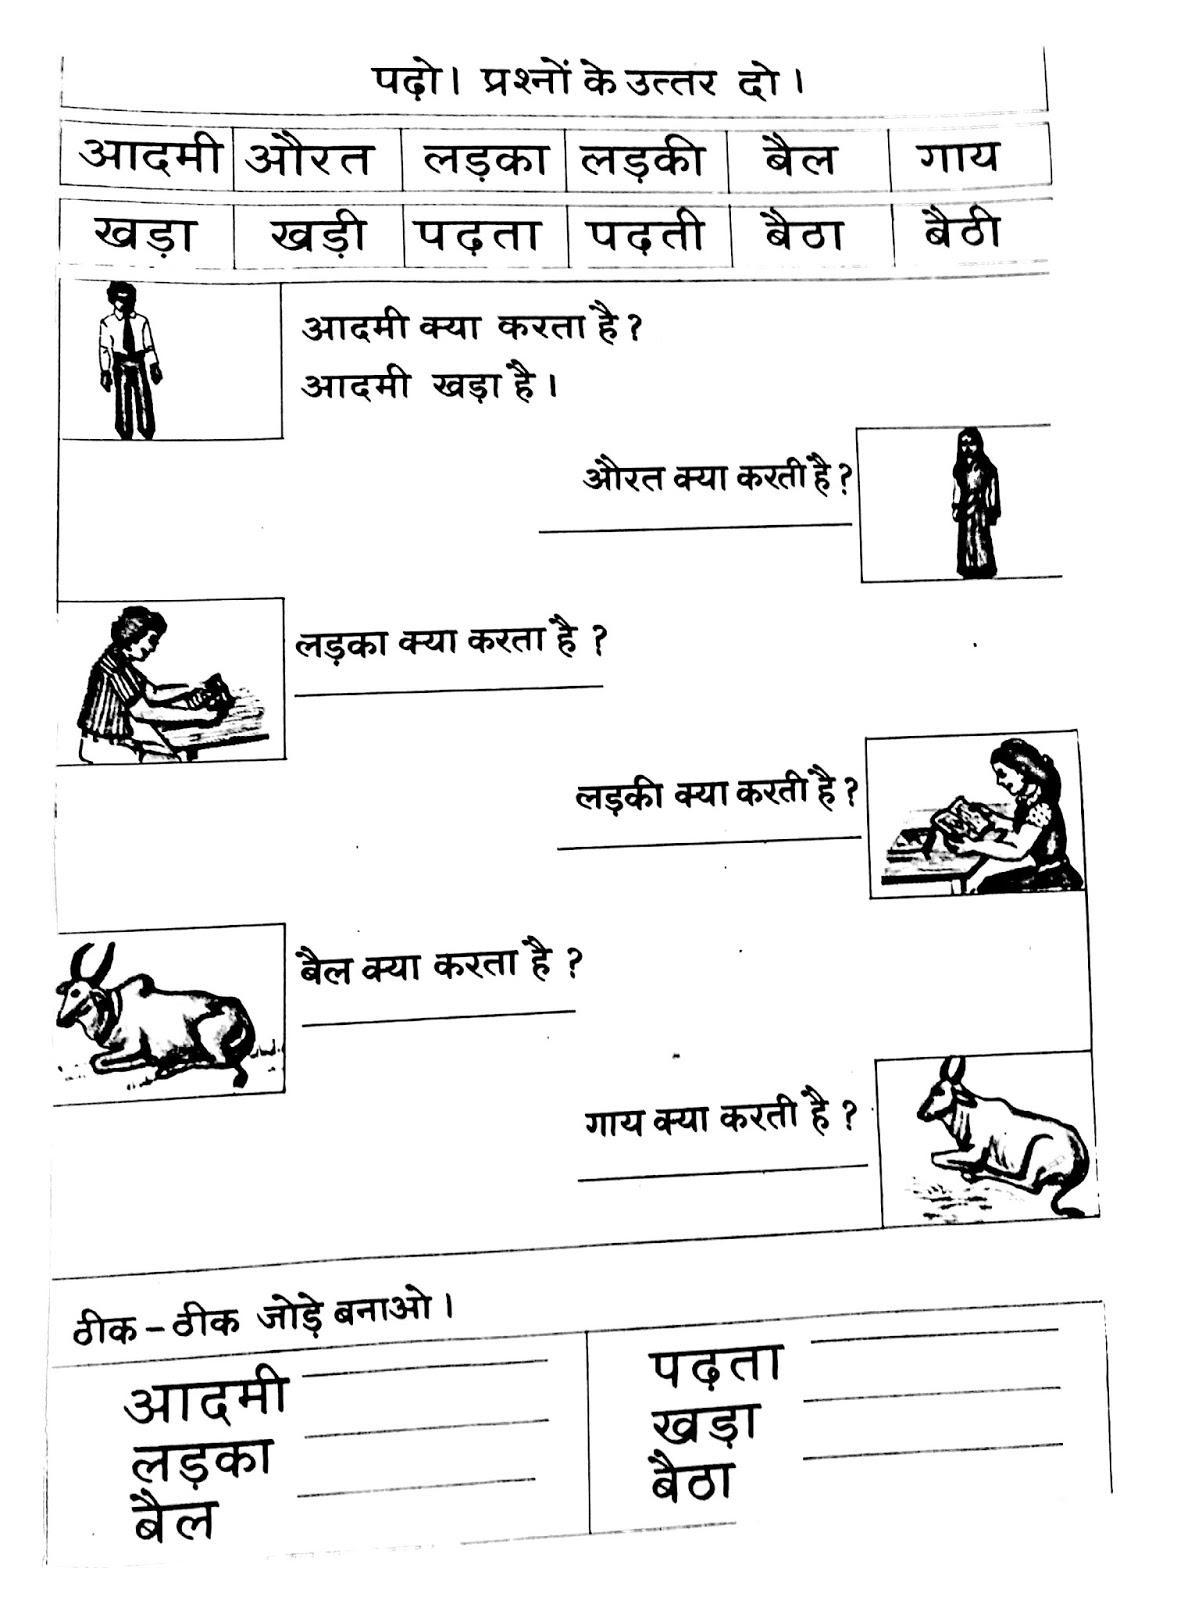 पढ़ो। प्रश्नों के उत्तर दो।
आदमी औरत लड़का लड़की बैल गाय
खड़ा खड़ी पढ़ता पढ़ती बैठा बैठी
आदमी क्या करता है?
आदमी खड़ा है।
औरत क्या करती है?
लड़का क्या करता है ?
लड़की क्या करती है?
बैल क्या करता है ?
गाय क्या करती है ?
ठीक-ठीक जोड़े बनाओ।
आदमी
लड़का
बैल
पढ़ता
खड़ा
बैठा